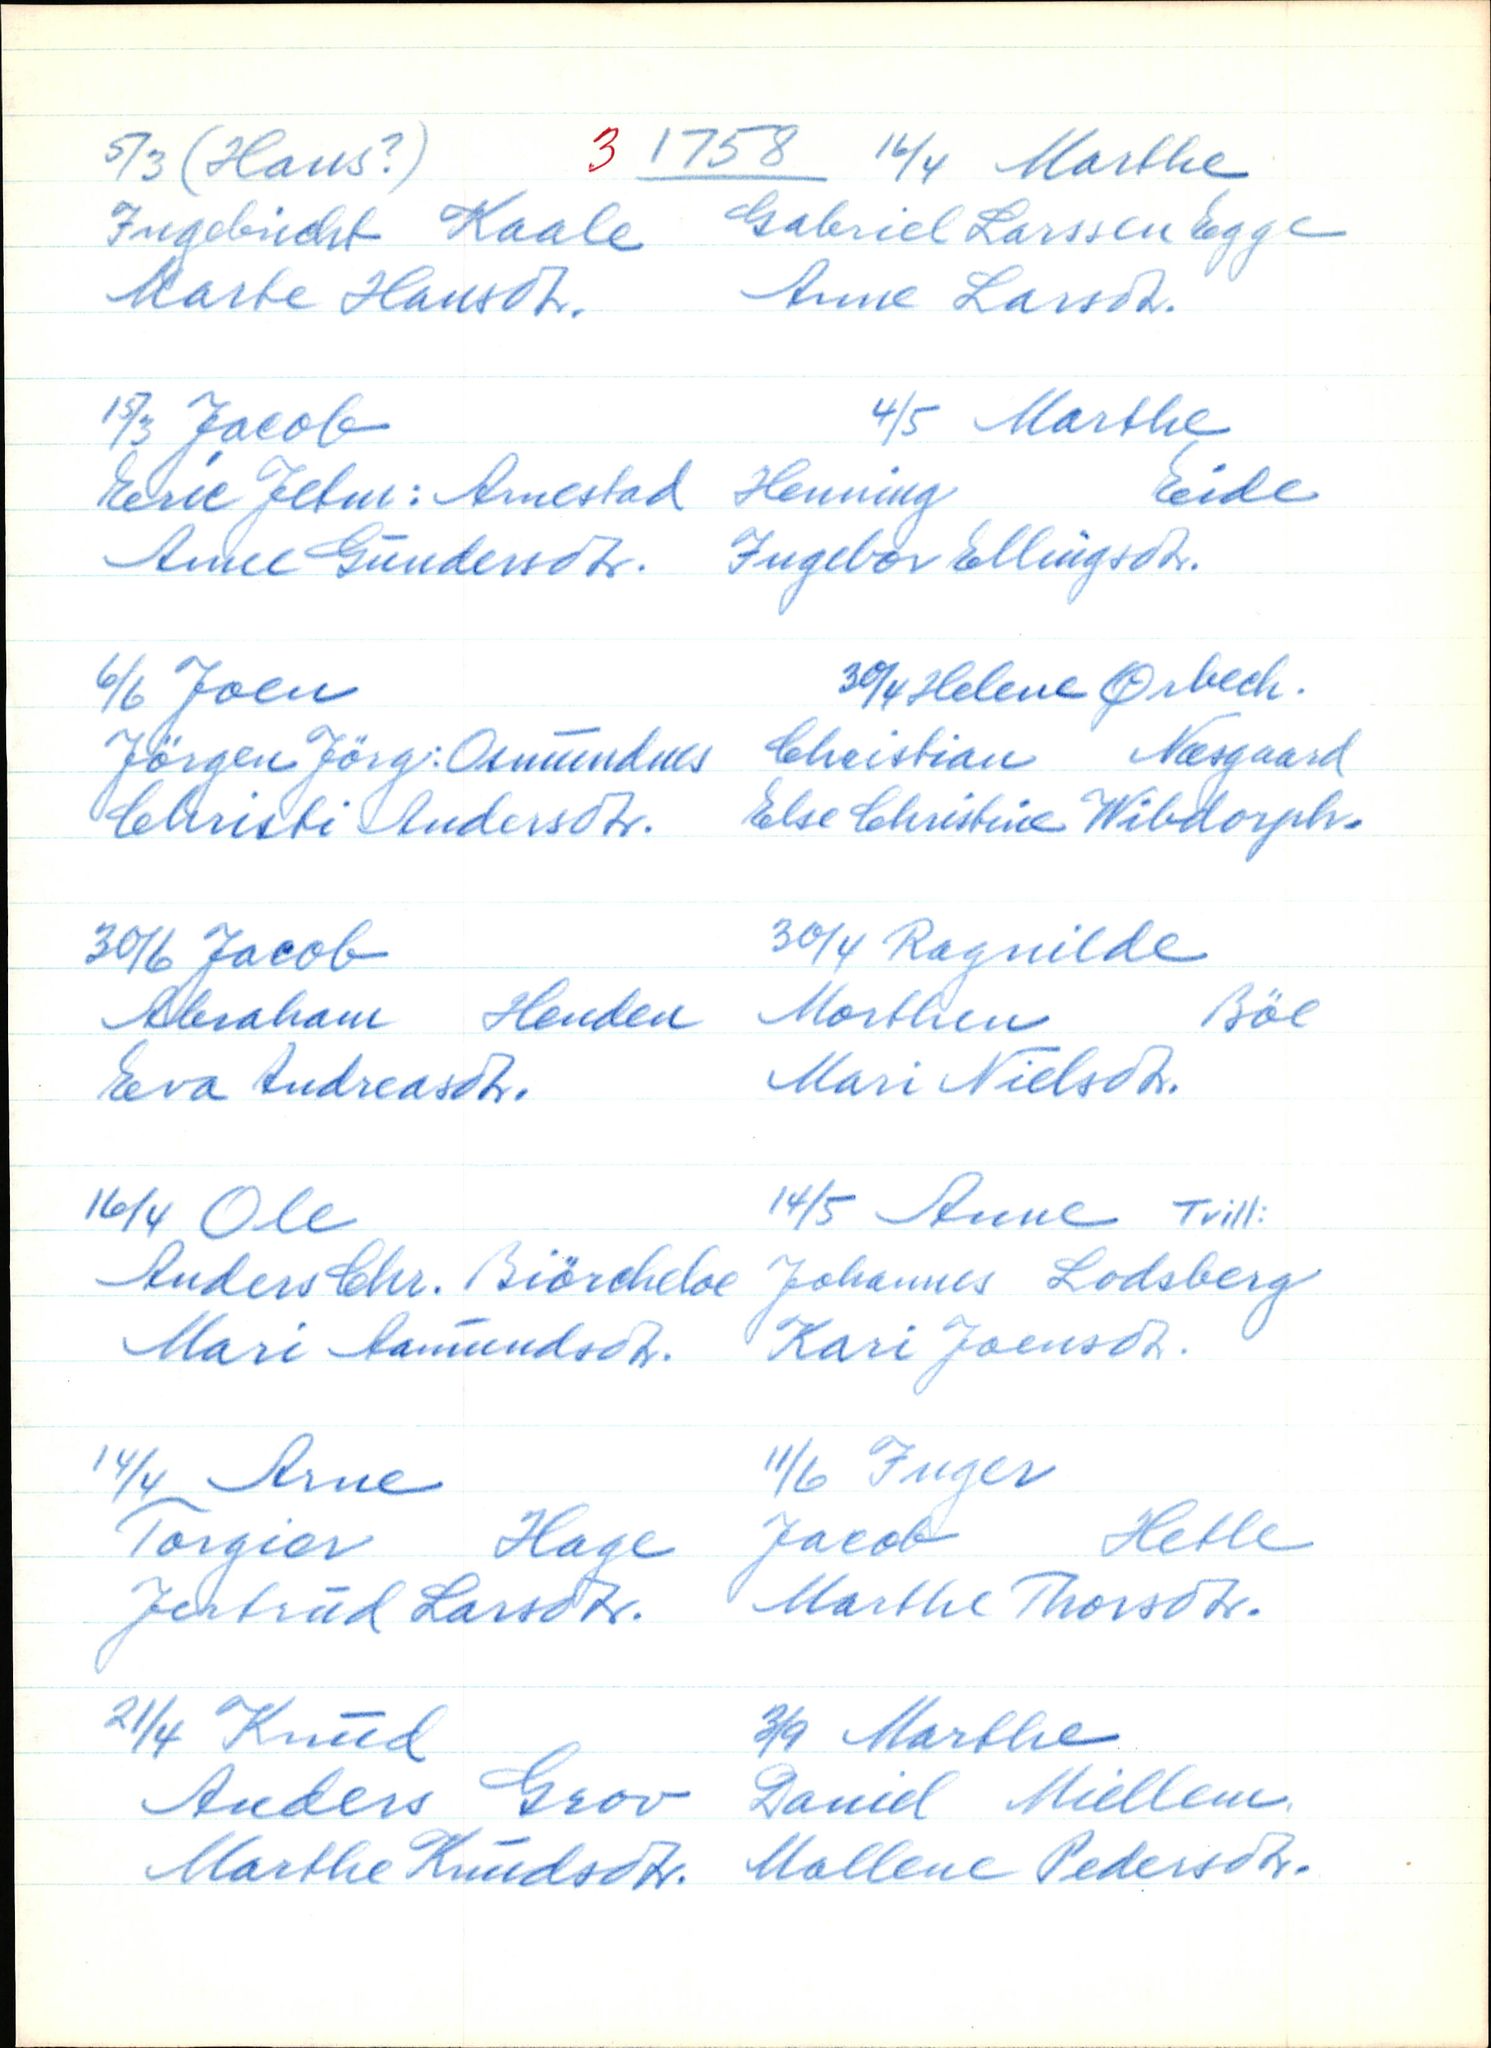 3 1758
5/3 (Hans?)
Ingebricht Kaale
Marte Hansdtr.
15/3 Jacob
Eric Jetm: Arnestad
Anne Gundersdtr.
6/6 Joen
Jörgen Jörg: Osmundnes
Christi Andersdtr.
30/6 Jacob
Abraham Henden
Eva Andreasdtr.
16/4 Ole
Anders Chr. Biörcheloe
Mari Aamundsdtr.
14/4 Arne
Torgier Hage
Jertrud Larsdtr.
21/4 Knud
Anders Grov
Marthe Knudsdtr.
16/4 Marthe
Gabriel Larssen Egge
Anne Larsdtr.
4/5 Marthe
Henning Eide
Ingebor Ellingsdtr.
30/4 Helene Ørbech.
Christian Næsgaard
Else Christine Wibdorph.
30/4 Ragnilde
Morthen Böe
Mari Nielsdtr.
14/5 Anne Tvill:
Johannes Lodsberg
Kari Joensdtr.
11/6 Inger
Jacob Hetle
Marthe Thorsdtr.
3/9 Marthe
Daniel Miellem.
Mallene Pedersdtr.